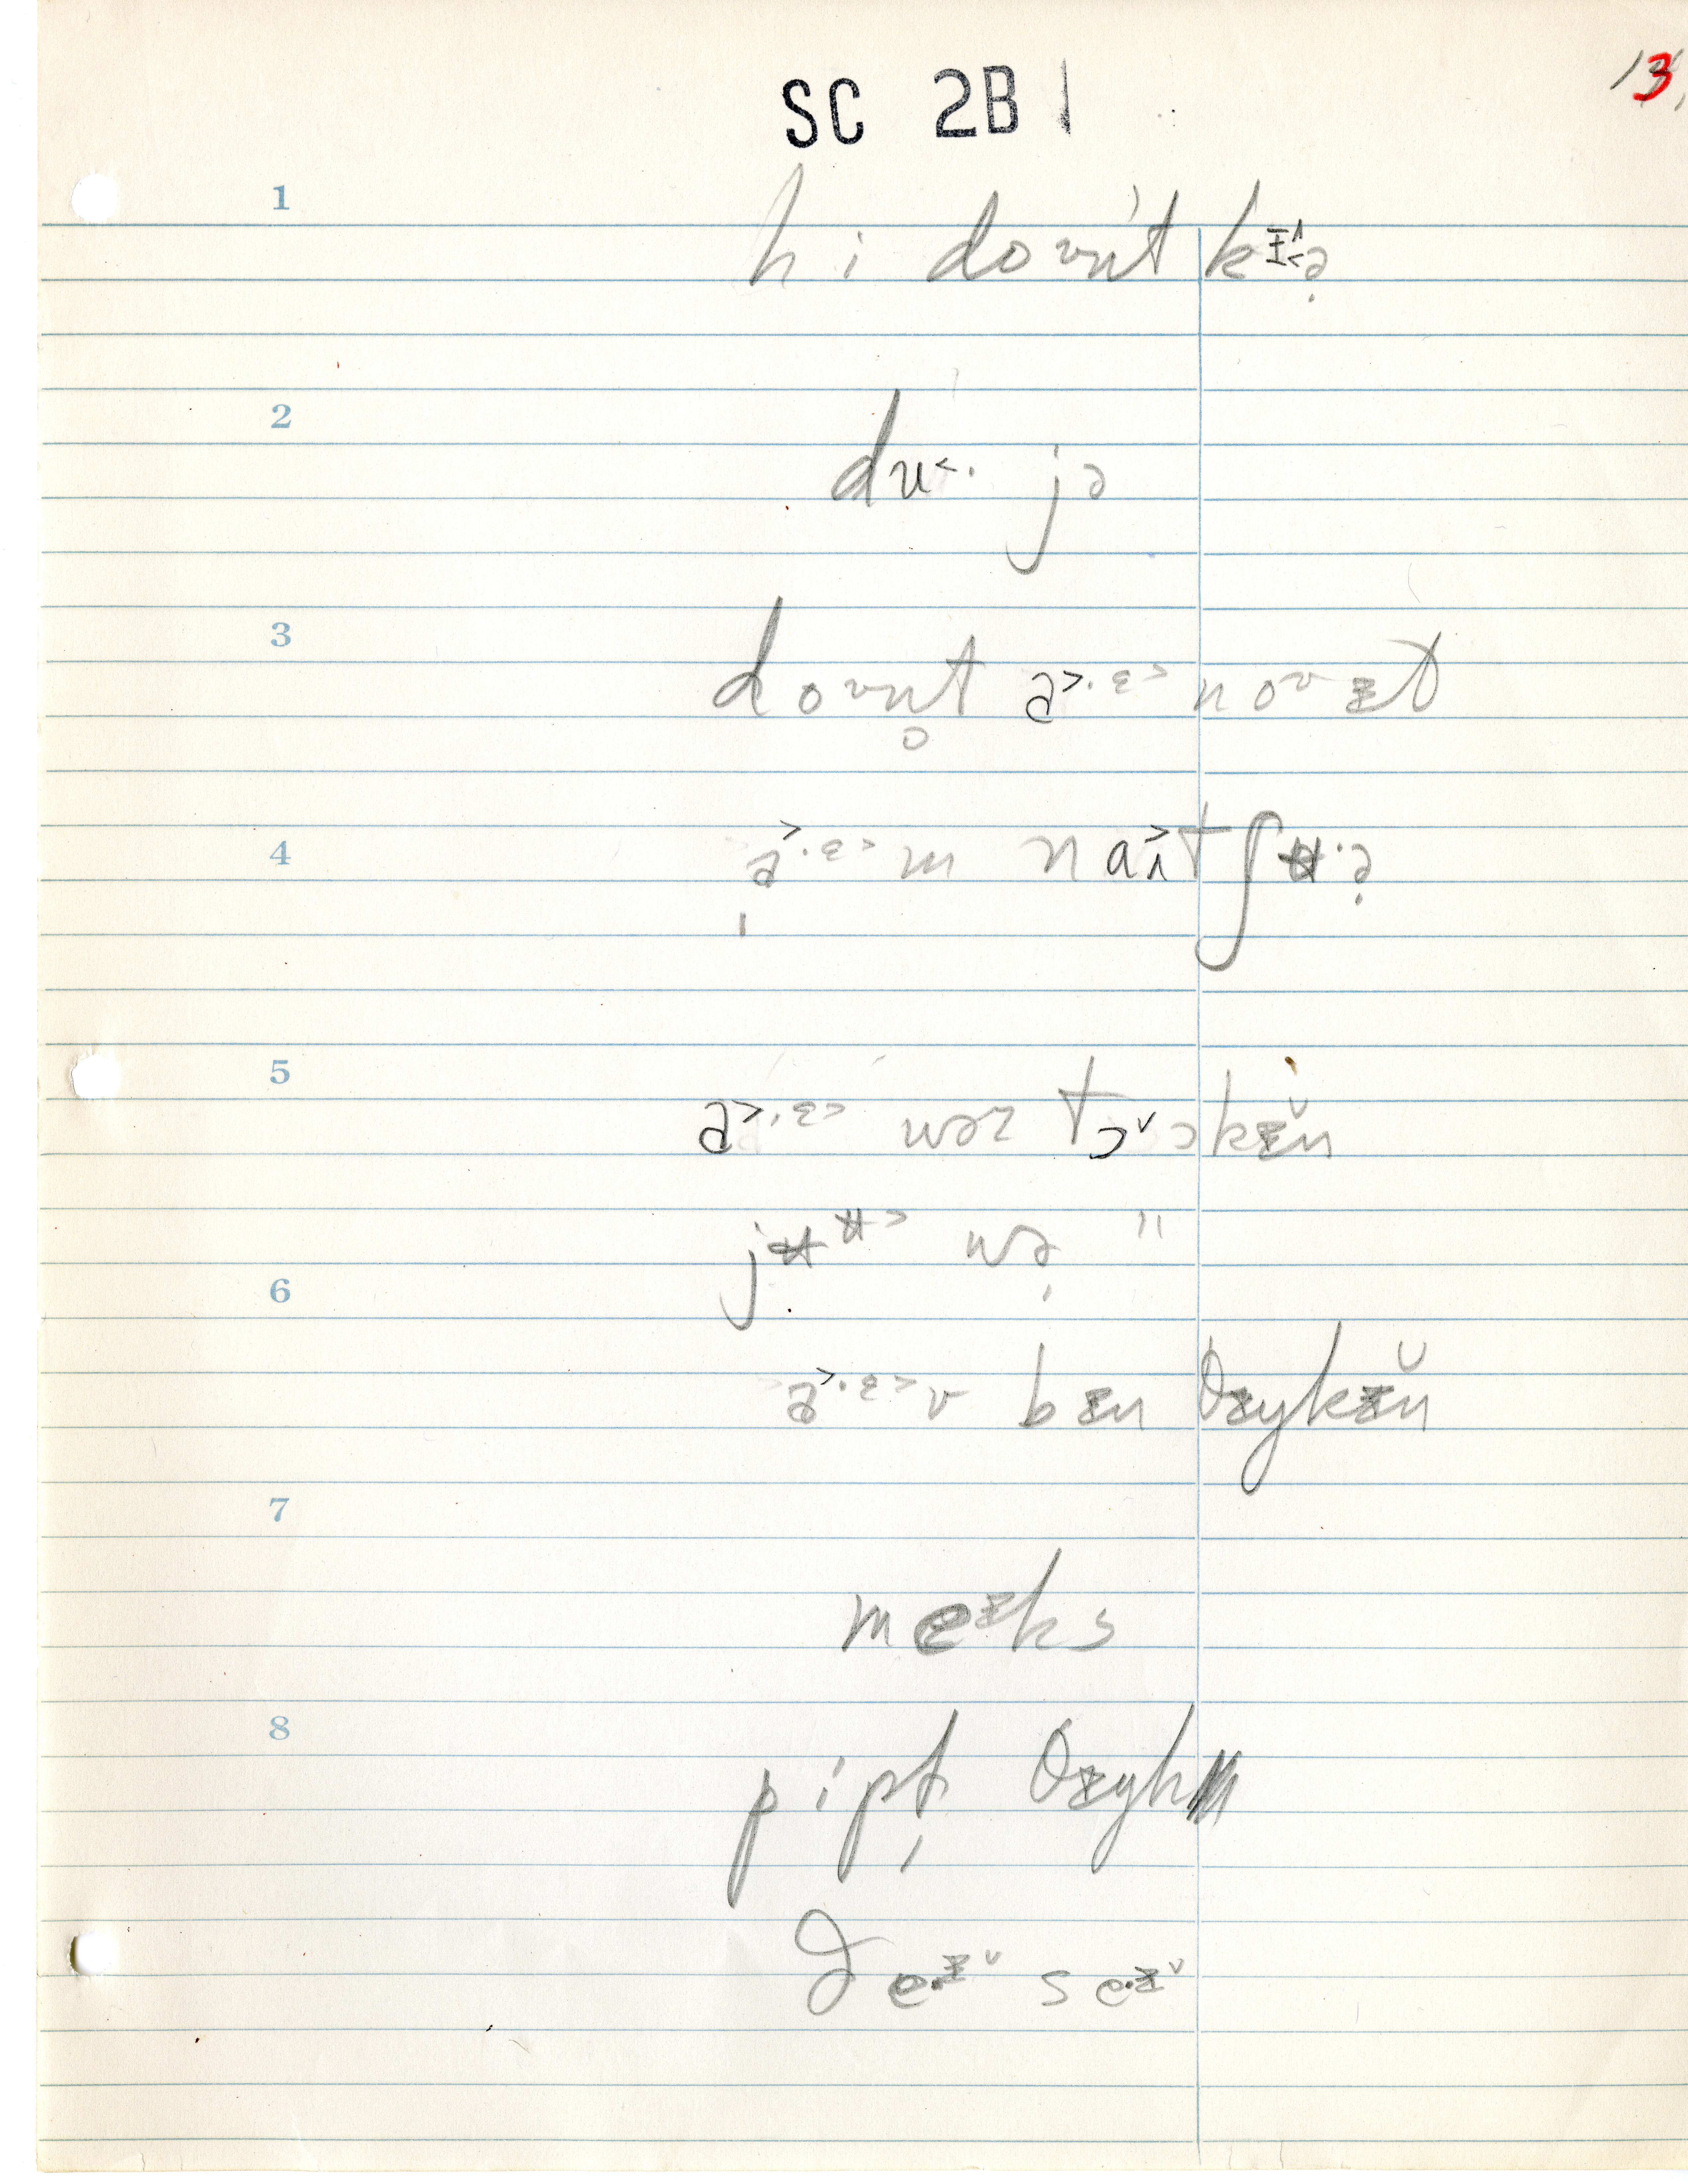 SC 2B1
13.
1
hi doʊnt kɪ˂ə̣
2
du˂· jə
3
doʊn̥t a˃·ɛ˃ noʊ ɪt
4
a˃·ɛ˃m naɪ˃tʃʉ·ə̣
5
a˃·ɛ˃ wəz tɔˇɔkɪ̆n
jʉʉ˃ wə̣ "
6
a˃·ɛ˃v bɪn θɪŋkɪ̆n
7
meɪks
8
pipt̩ θɪŋk
ðe·ɪˇ se·ɪˇ